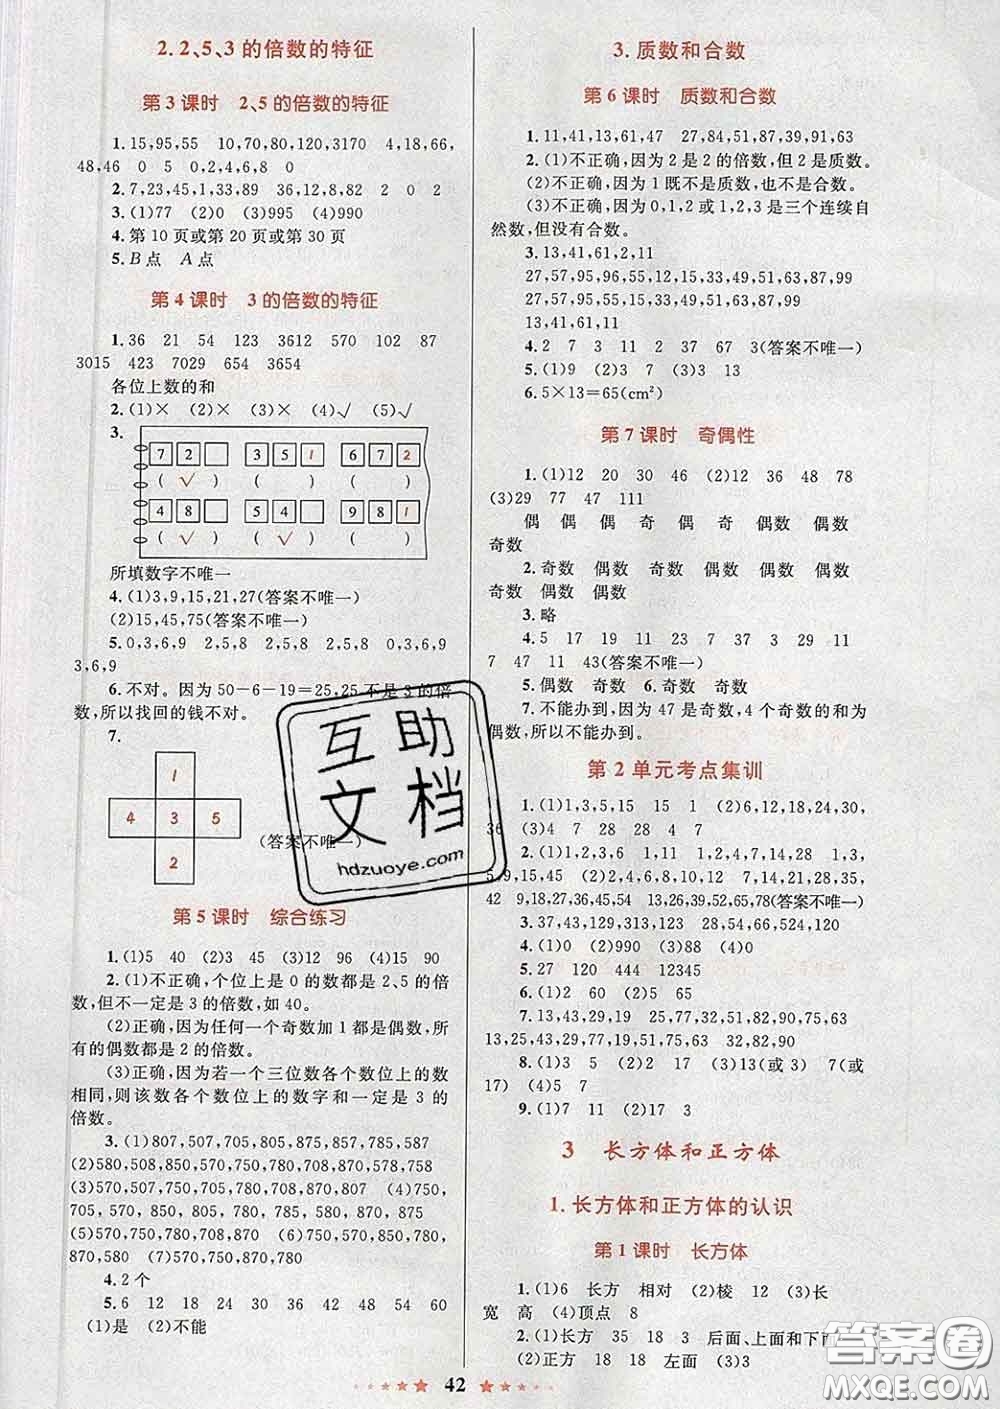 2.2、5、3的倍数的特征
第3课时 2、5的倍数的特征
1.15,95,55 10,70,80,120,3170 4,18,66,
48,46 0 5 0,2,4,6,8 0
2.7,23,45,1,33,89 36,12,8,82 2 0 2
3.(1)77 (2)0 (3)995 (4)990
4.第10页或第20页或第30页
5.B点 A点
第4课时 3的倍数的特征
1.36 21 54 123 3612 570 102 87
3015 423 7029 654 3654
各位上数的和
2.(1)× (2)× (3)× (4)√ (5)√
3.
7 2 3 5 1 6 7 2
( √ ) ( ) ( )
4 8 5 4 9 8 1
( √ ) ( √ ) ( )
所填数字不唯一
4.(1)3,9,15,21,27(答案不唯一)
(2)15,45,75(答案不唯一)
5.0,3,6,9 2,5,8 2,5,8 2,5,8 0,3,6,9
3,6,9
6.不对。因为50-6-19=25,25不是3的倍
数,所以找回的钱不对。
7.
1
4 3 5
2
(答案不唯一)
第5课时 综合练习
1.(1)5 40 (2)3 45 (3)12 96 (4)15 90
2.(1)不正确,个位上是0的数都是2、5的倍
数,但不一定是3的倍数,如40。
(2)正确,因为任何一个奇数加1都是偶数,所
有的偶数都是2的倍数。
(3)正确,因为若一个三位数各个数位上的数
相同,则该数各个数位上的数字和一定是3的
倍数。
3.(1)807,507,705,805,857,875,785,587
(2)580,508,570,750,780,870,708,578,758
(3)507,570,705,750,708,780,870 (4)750,
705,570,850,805,580,785,875 (5)750,
507,570,850,508,580,780,870,708 (6)750,
570,780,870,850,580 (7)750,570,780,
870,580 (7)570,750,870,780
4.2个
5.6 12 18 24 30 42 48 54 60
(1)是 (2)不能
3.质数和合数
第6课时 质数和合数
1.11,41,13,61,47 27,84,51,87,39,91,63
2.(1)不正确,因为2是2的倍数,但2是质数。
(2)不正确,因为1既不是质数,也不是合数。
(3)不正确,因为0,1,2或1,2,3是三个连续自
然数,但没有合数。
3.13,41,61,2,11
27,57,95,96,55,12,15,51,18,63,87,99
27,57,95,55,15,51,63,87,99
13,41,61,11
4.2 7 3 11 2 37 67 3(答案不唯一)
5.(1)9 (2)3 7 (3)3 13
6.5×13=65(cm²)
第7课时 奇偶性
1.(1)12 20 30 46 (2)12 36 48 78
(3)29 77 47 111
偶 偶 偶 奇 偶 奇 偶数 偶数
奇数
2.奇数 偶数 奇数 偶数 偶数 偶数
奇数 偶数 偶数
3.略
4.5 17 19 11 23 7 37 3 29 11
7 47 11 43(答案不唯一)
5.偶数 奇数 6.奇数 奇数
7.不能办到,因为47是奇数,4个奇数的和为
偶数,所以不能办到。
第2单元考点集训
1.(1)1,3,5,15 15 1 (2)6,12,18,24,30,
36 (3)4 7 28 28 4 7
2.(1)1,2,3,6 1,11 1,2,4,8 1,2 1,3,
5,9,15,45 (2)2,4,6,8,10,12 7,14,21,28,35,
42 9,18,27,36,45,54 13,26,39,52,65,78(答案不唯一)
3.37,43,129,313,123 54,88,66,524,120
4.(1)0 (2)990 (3)88 (4)0
5.27 120 444 12345
6.(1)2 60 (2)5 65
7.13,43,29,19 25,77,32,51,82,90,75,63
13,25,43,29,77,19,51,75,63 32,82,90
8.(1)3 5 (2)2 17 (3)13(或3) 7(或
17) (4)5 7
9.(1)7 11 (2)17 3
3 长方体和正方体
1.长方体和正方体的认识
第1课时 长方体
1.(1)6 长方 相对 (2)棱 12 (3)长
宽 高 (4)顶点 8
2.(1)长方 35 18 3 后面、上面和下面
(2)正方 18 18 左面 (3)3
42
互助文档
hdzuoye.com
答案圈
MXQE.COM